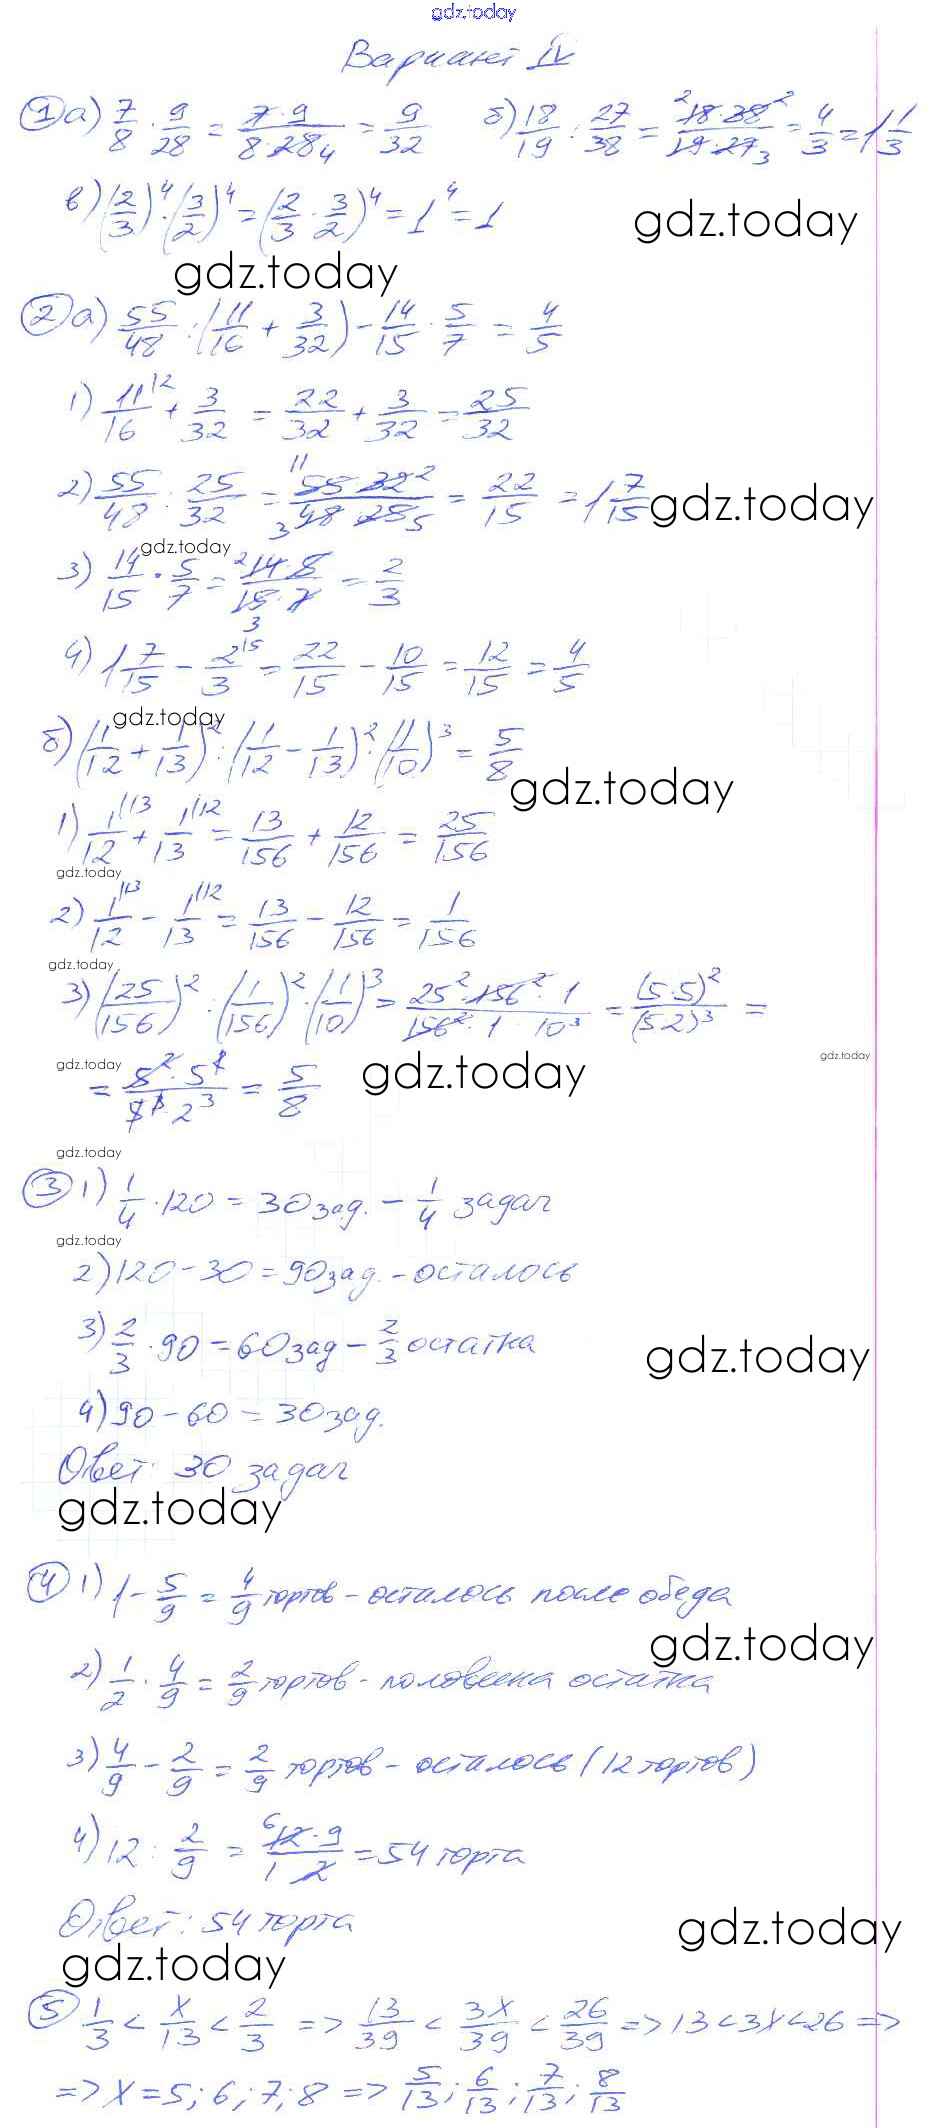 gdz.today
Вариант IV
① а) 7/8 · 9/28 = 7·9/8·28 4 = 9/32 б) 18/19 : 27/38 = 2 18·38 2/19·27 3 = 4/3 = 1 1/3
в) (2/3)^4 · (3/2)^4 = (2/3 · 3/2)^4 = 1^4 = 1
gdz.today
gdz.today
② а) 55/48 : (11/16 + 3/32) - 14/15 · 5/7 = 4/5
1) 11/16 |2 + 3/32 = 22/32 + 3/32 = 25/32
2) 55/48 : 25/32 = 11 55·32 2/3 48·25 5 = 22/15 = 1 7/15
gdz.today
gdz.today
3) 14/15 · 5/7 = 2 14·5/15·7 3 = 2/3
4) 1 7/15 - 2/3 |5 = 22/15 - 10/15 = 12/15 = 4/5
gdz.today
б) (1/12 + 1/13)^2 : (1/12 - 1/13)^2 · (1/10)^3 = 5/8
gdz.today
1) 1/12 |13 + 1/13 |12 = 13/156 + 12/156 = 25/156
gdz.today
2) 1/12 |13 - 1/13 |12 = 13/156 - 12/156 = 1/156
gdz.today
3) (25/156)^2 : (1/156)^2 · (1/10)^3 = 25^2·156^2·1/156^2·1·10^3 = (5·5)^2/(5·2)^3 =
gdz.today
gdz.today
gdz.today
= 5^2·5^2/5^3·2^3 = 5/8
gdz.today
③ 1) 1/4 · 120 = 30 зад. - 1/4 задач
gdz.today
2) 120 - 30 = 90 зад. - осталось
3) 2/3 · 90 = 60 зад - 2/3 остатка
gdz.today
4) 90 - 60 = 30 зад.
Ответ: 30 задач
gdz.today
④ 1) 1 - 5/9 = 4/9 тортов - осталось после обеда
gdz.today
2) 1/2 · 4/9 = 2/9 тортов - половина остатка
3) 4/9 - 2/9 = 2/9 тортов - осталось (12 тортов)
4) 12 : 2/9 = 6 12·9/1·2 = 54 торта
Ответ: 54 торта
gdz.today
gdz.today
⑤ 1/3 < x/13 < 2/3 => 13/39 < 3x/39 < 26/39 => 13 < 3x < 26 =>
=> x = 5; 6; 7; 8 => 5/13; 6/13; 7/13; 8/13